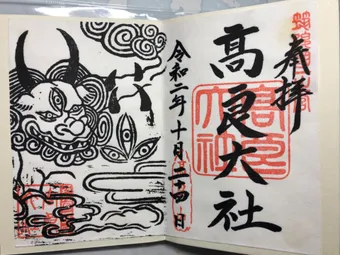 奉拝
高良大社
令和二年十月二十四日